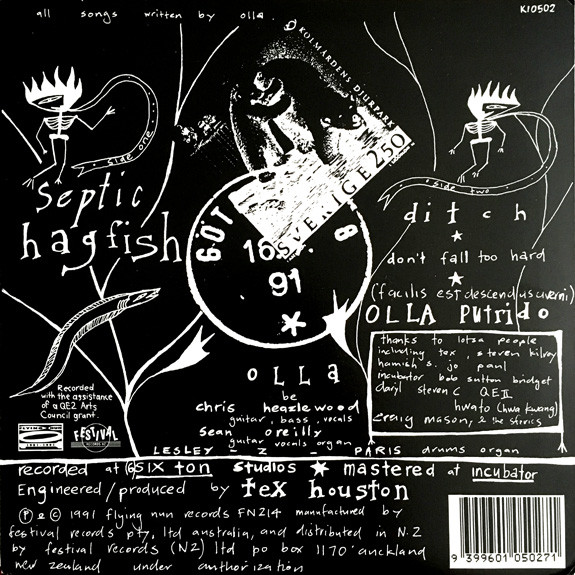 all songs written by olla
K10502
KOLMÅRDENS DJURPARK
SVERIGE 250
side one
septic
hagfish
GÖT
8
91
side two
ditch
don't fall too hard
(facilis est descendus averni)
OLLA putrido
thanks to lotsa people
including tex, steven kilroy
hamish s. jo paul
incubator bob sutton bridget
daryl steven C QEII
hwato (hwa kwang)
craig mason, & the
OLLa
be
chris heazlewood
guitar, bass, vocals
sean o'reilly
guitar vocals organ
LESLEY - Z - PARIS drums organ
Recorded
with the assistance
of a QE2 Arts
Council grant.
FESTIVAL
recorded at SIX ton studios ★ mastered at incubator
Engineered/produced by tex houston
Ⓟ & © 1991 flying nun records FN214 manufactured by
festival records pty, ltd australia, and distributed in N.Z
by festival records (NZ) ltd po box 1170 auckland
new zealand under authorization
9 399601 050271